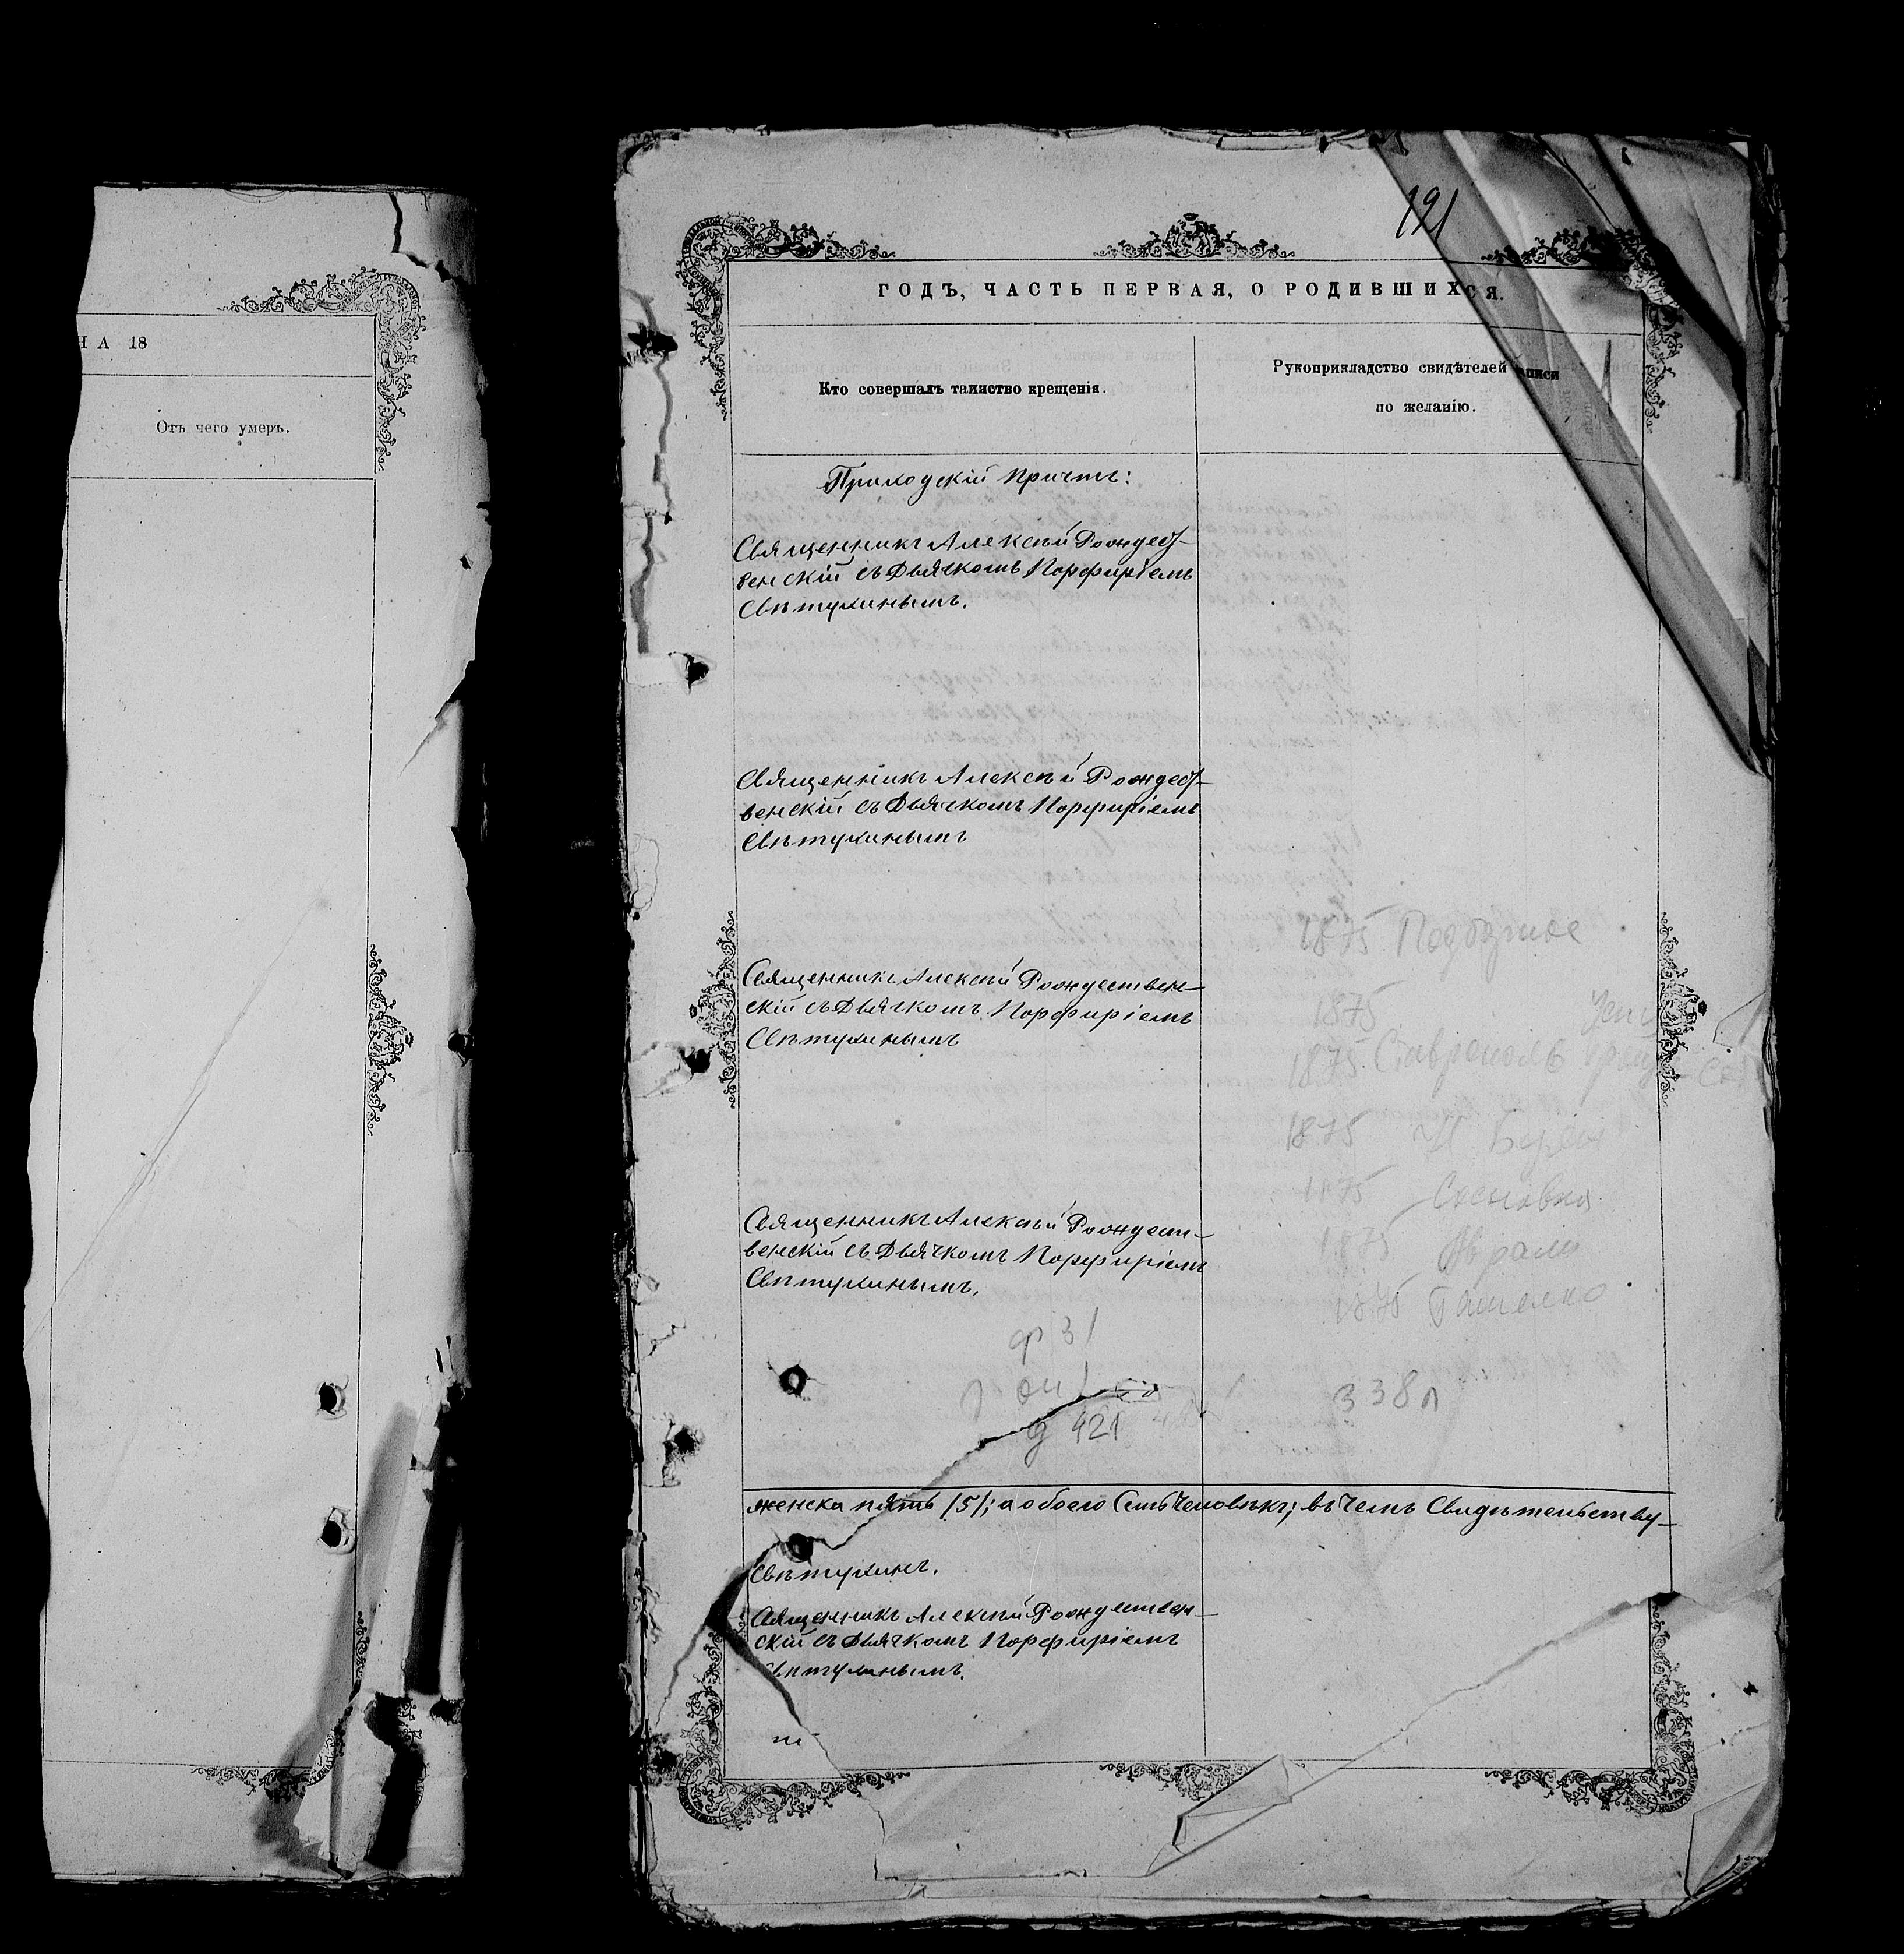 НА 18
Отъ чего умеръ.
191
ГОДЪ, ЧАСТЬ ПЕРВАЯ, О РОДИВШИХСЯ.
Кто совершалъ таинство крещенія.
Рукоприкладство свидѣтелей записи
по желанію.
Приходскій Причтъ:
Священникъ Алексѣй Рождест-
венскій съ Дьячкомъ Порфиріемъ
Свѣтухинымъ.
Священникъ Алексѣй Рождест-
венскій съ Дьячкомъ Порфиріемъ
Свѣтухинымъ
Священникъ Алексѣй Рождествен-
скій съ Дьячкомъ Порфиріемъ
Свѣтухинымъ
Священникъ Алексѣй Рождест-
венскій съ Дьячкомъ Порфиріемъ
Свѣтухинымъ.
1875
1875
1875 Ставрополь
1875
1875 Сосновка
1875
1875 Ташелка
ф 31
338 л
д 421
женска пять /5/; а обоего Семь Человѣкъ; въ Чемъ Свидѣтельству-
Свѣтухинъ.
Священникъ Алексѣй Рождествен-
скій съ Дьячкомъ Порфиріемъ
Свѣтухинымъ.